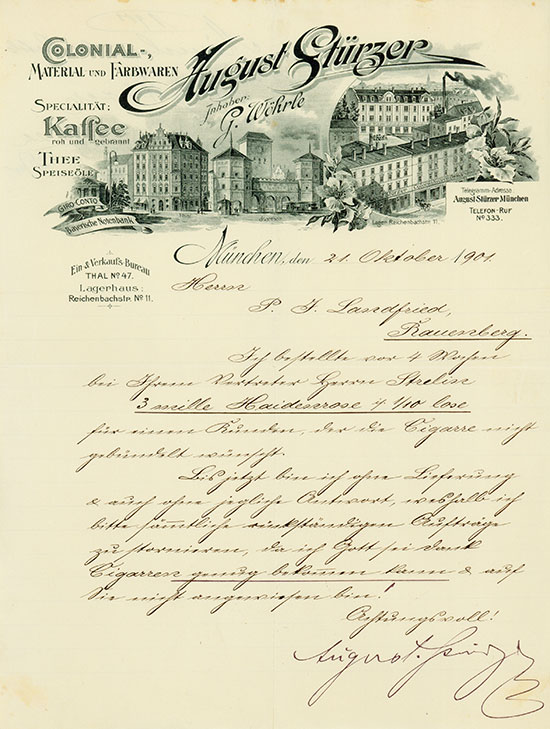 Colonial-,
Material und Farbwaren
August Stürzer
Inhaber:
G. Wöhrle
Specialität:
Kaffee
roh und gebrannt
Thee
Speiseöle
Giro Conto
Bayerische Notenbank
Lager Reichenbachstr. 11.
Telegramm-Adresse
August Stürzer München
Telefon-Ruf
No 333.
Ein- & Verkaufs Bureau
Thal No 47.
Lagerhaus:
Reichenbachstr. No 11.
München, den 21. Oktober 1901.
Herrn
P. J. Landfried,
Rauenberg.
Ich bestellte vor 4 Wochen
bei Ihrem Vertreter Herrn Strelin
3 mille Haidenrose 1/10 lose
für einen Kunden, der die Cigarre nicht
gebündelt wünscht.
Bis jetzt bin ich ohne Lieferung
& auch ohne jegliche Antwort, weshalb ich
bitte sämtliche rückständigen Aufträge
zu stornieren, da ich Gott sei dank
Cigarren genug bekommen kann & auf
Sie nicht angewiesen bin!
Achtungsvoll!
August Stürzer